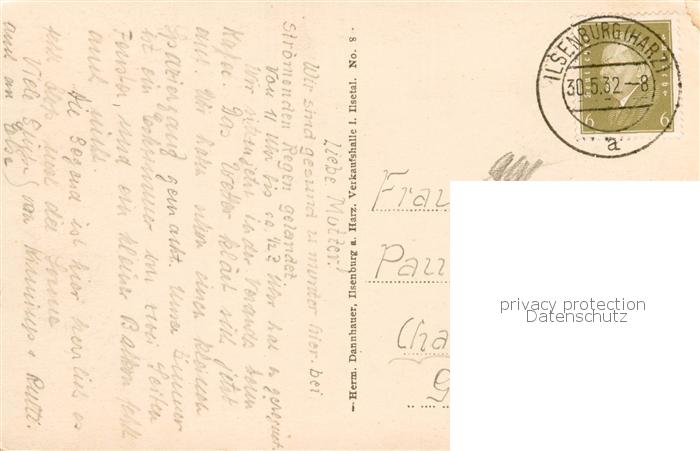 Liebe Mutter!
Wir sind gesund u munter hier. bei
strömenden Regen gelandet.
Von 11 Uhr bis ca. ½2 Uhr hat es geregnet.
Wir sitzen in der Veranda beim
Kafee. Das Wetter klärt sich jetzt
auf. Wir haben schon einen kleinen
Spaziergang gemacht. Unser Zimmer
ist ein Eckzimmer von zwei Seiten
Fenster, und ein kleiner Balkon fehlt
auch nicht.
Die Gegend ist hier herrlich es
nur die Sonne
Viele Grüße von u Rutti.
auch an Else
– Herm. Dannhauer, Ilsenburg a. Harz. Verkaufshalle i. Ilsetal. No. 8 -
ILSENBURG (HARZ)
30.5.32.–8
a
6 6
Frau
Pau
Cha
privacy protection
Datenschutz